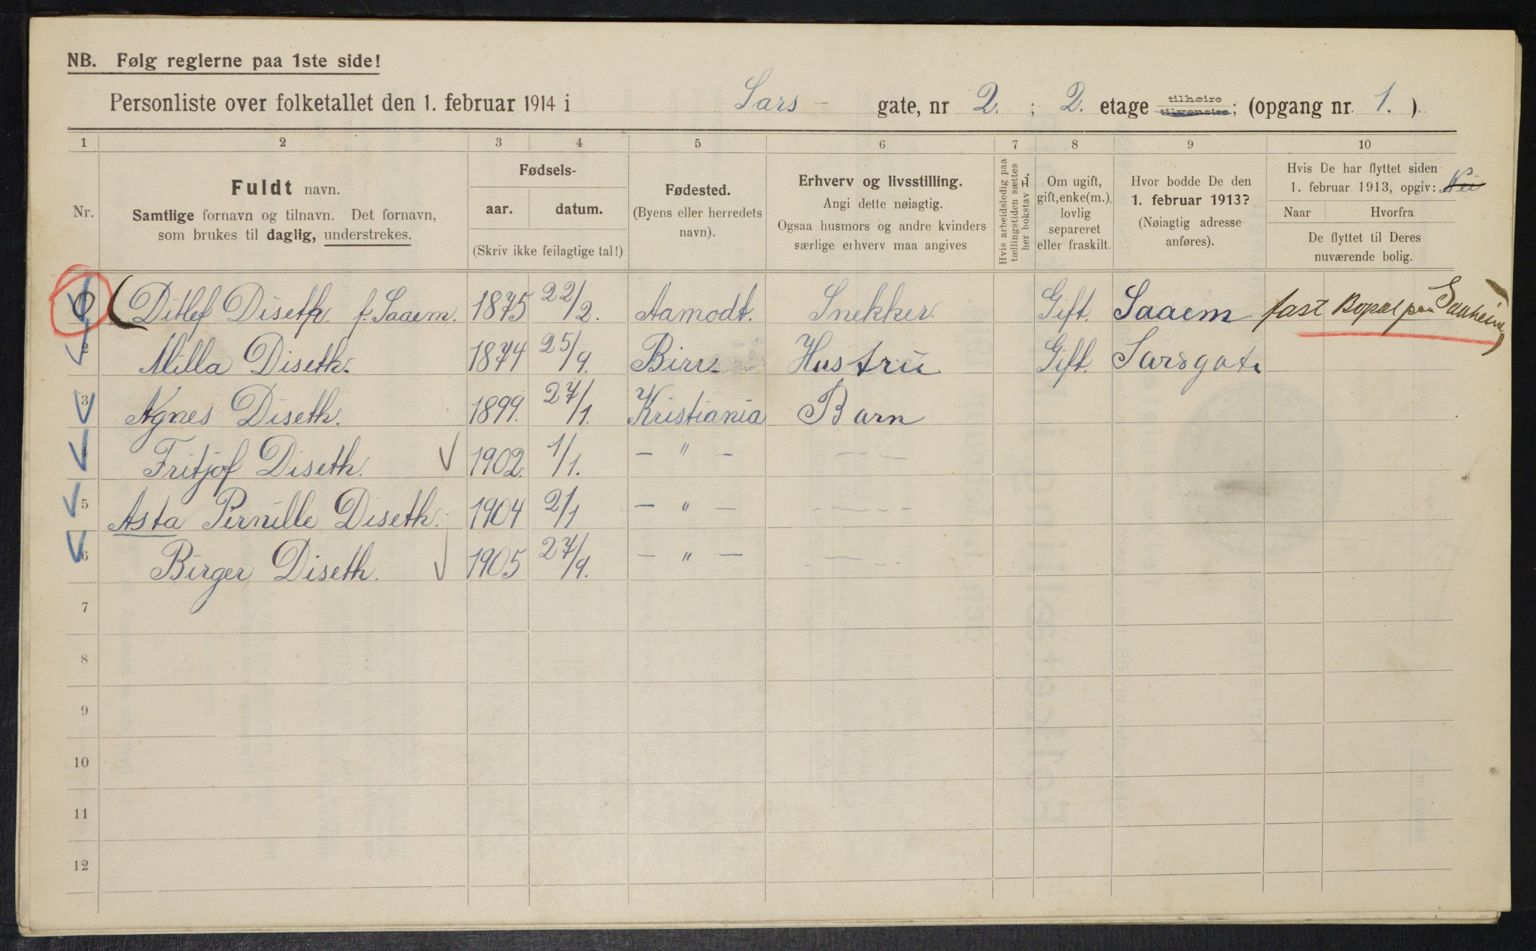 NB. Følg reglerne paa 1ste side!
Personliste over folketallet den 1. februar 1914 i Sars - gate, nr 2. ; 2. etage tilhøire ; (opgang nr. 1. ).
1 2 3 4 5 6 7 8 9 10
Nr.
Fuldt navn.
Samtlige fornavn og tilnavn. Det fornavn,
som brukes til daglig, understrekes.
Fødsels-
aar. datum.
(Skriv ikke feilagtige tal!)
Fødested.
(Byens eller herredets
navn).
Erhverv og livsstilling.
Angi dette nøiagtig.
Ogsaa husmors og andre kvinders
særlige erhverv maa angives
Hvis arbeidsledig paa
tællingstiden sættes
her bokstav L.
Om ugift,
gift, enke(m.),
lovlig
separeret
eller fraskilt.
Hvor bodde De den
1. februar 1913?
(Nøiagtig adresse
anføres).
Hvis De har flyttet siden
1. februar 1913, opgiv: Nei
Naar Hvorfra
De flyttet til Deres
nuværende bolig.
Ditlef Diseth f. Saaem. 1875 22/2. Aamodt. Snekker. Gift. Saaem fast Bopæl paa
2 Milla Diseth. 1874 25/9. Birr Hustru Gift. Sarsgate
3 Agnes Diseth. 1899. 27/1. Kristiania Barn
Fritjof Diseth. 1902. 1/1. — " —
5 Asta Pernille Diseth. 1904 2/1 — " —
6 Birger Diseth. 1905 27/9. — " —
7
8
9
10
11
12